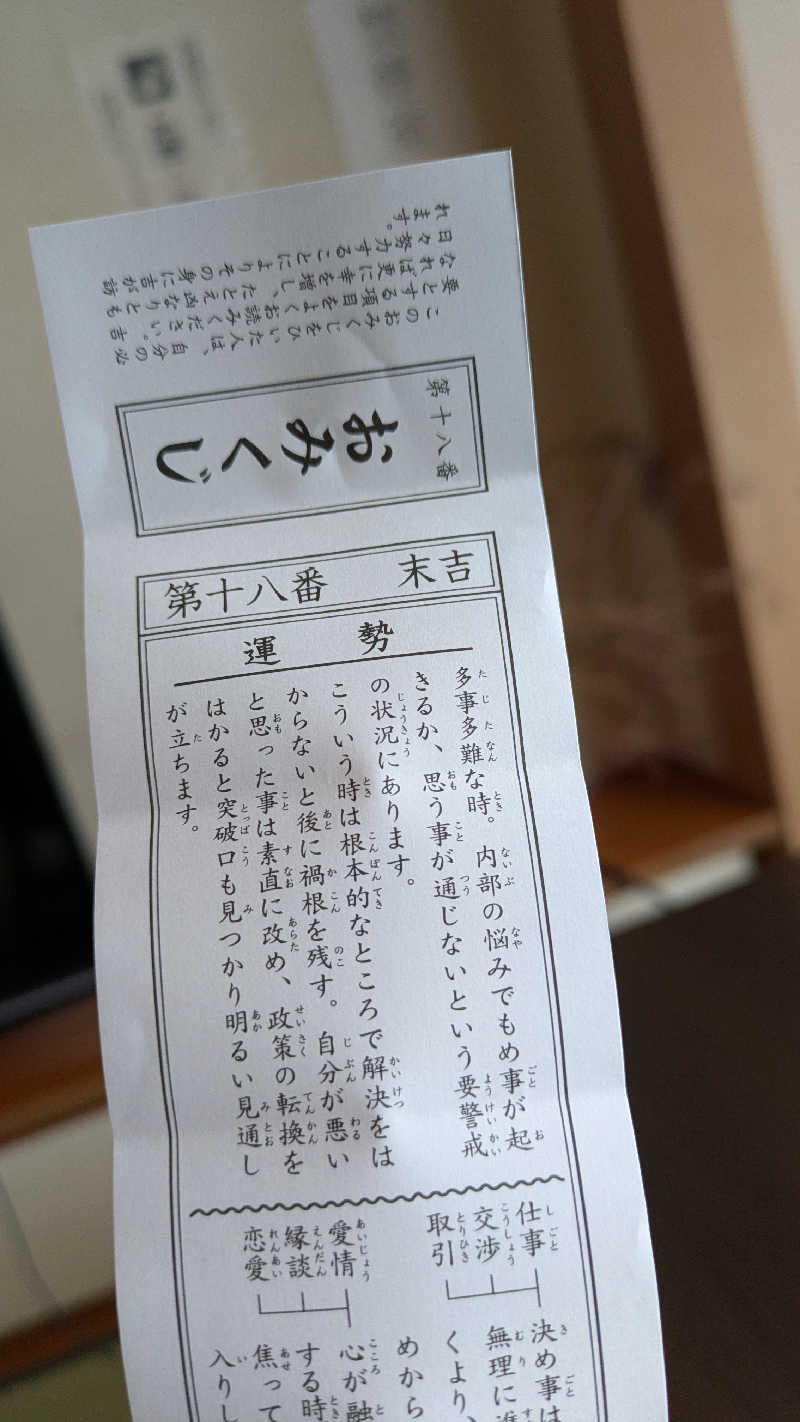 このおみくじをひいた人は、自分の必
要とする項目をよくお読みください。吉
なれば更に幸を増し、たとえ凶なりとも
日々努力することによりその身に吉が訪
れます。
第十八番
おみくじ
第十八番 末吉
運勢
多事多難な時。内部の悩みでもめ事が起
きるか、思う事が通じないという要警戒
の状況にあります。
こういう時は根本的なところで解決をは
からないと後に禍根を残す。自分が悪い
と思った事は素直に改め、政策の転換を
はかると突破口も見つかり明るい見通し
が立ちます。
仕事
交渉
取引
決め事は
無理に進
くより、
めから
愛情
縁談
恋愛
心が融
する時
焦って
入りし